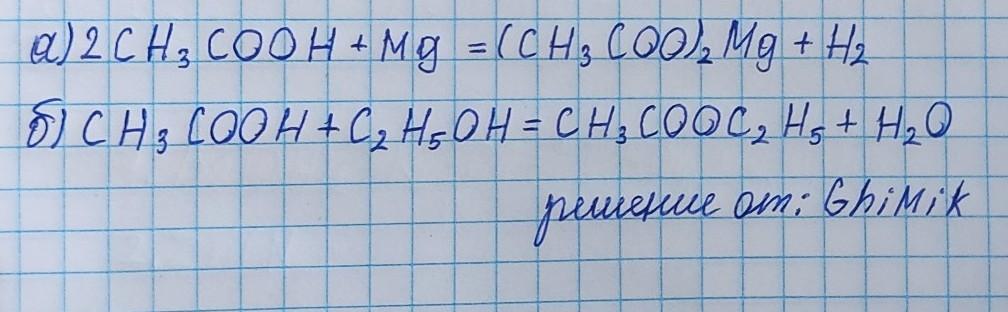 а) 2CH₃COOH + Mg = (CH₃COO)₂Mg + H₂
б) CH₃COOH + C₂H₅OH = CH₃COOC₂H₅ + H₂O
решение от: GhiMik